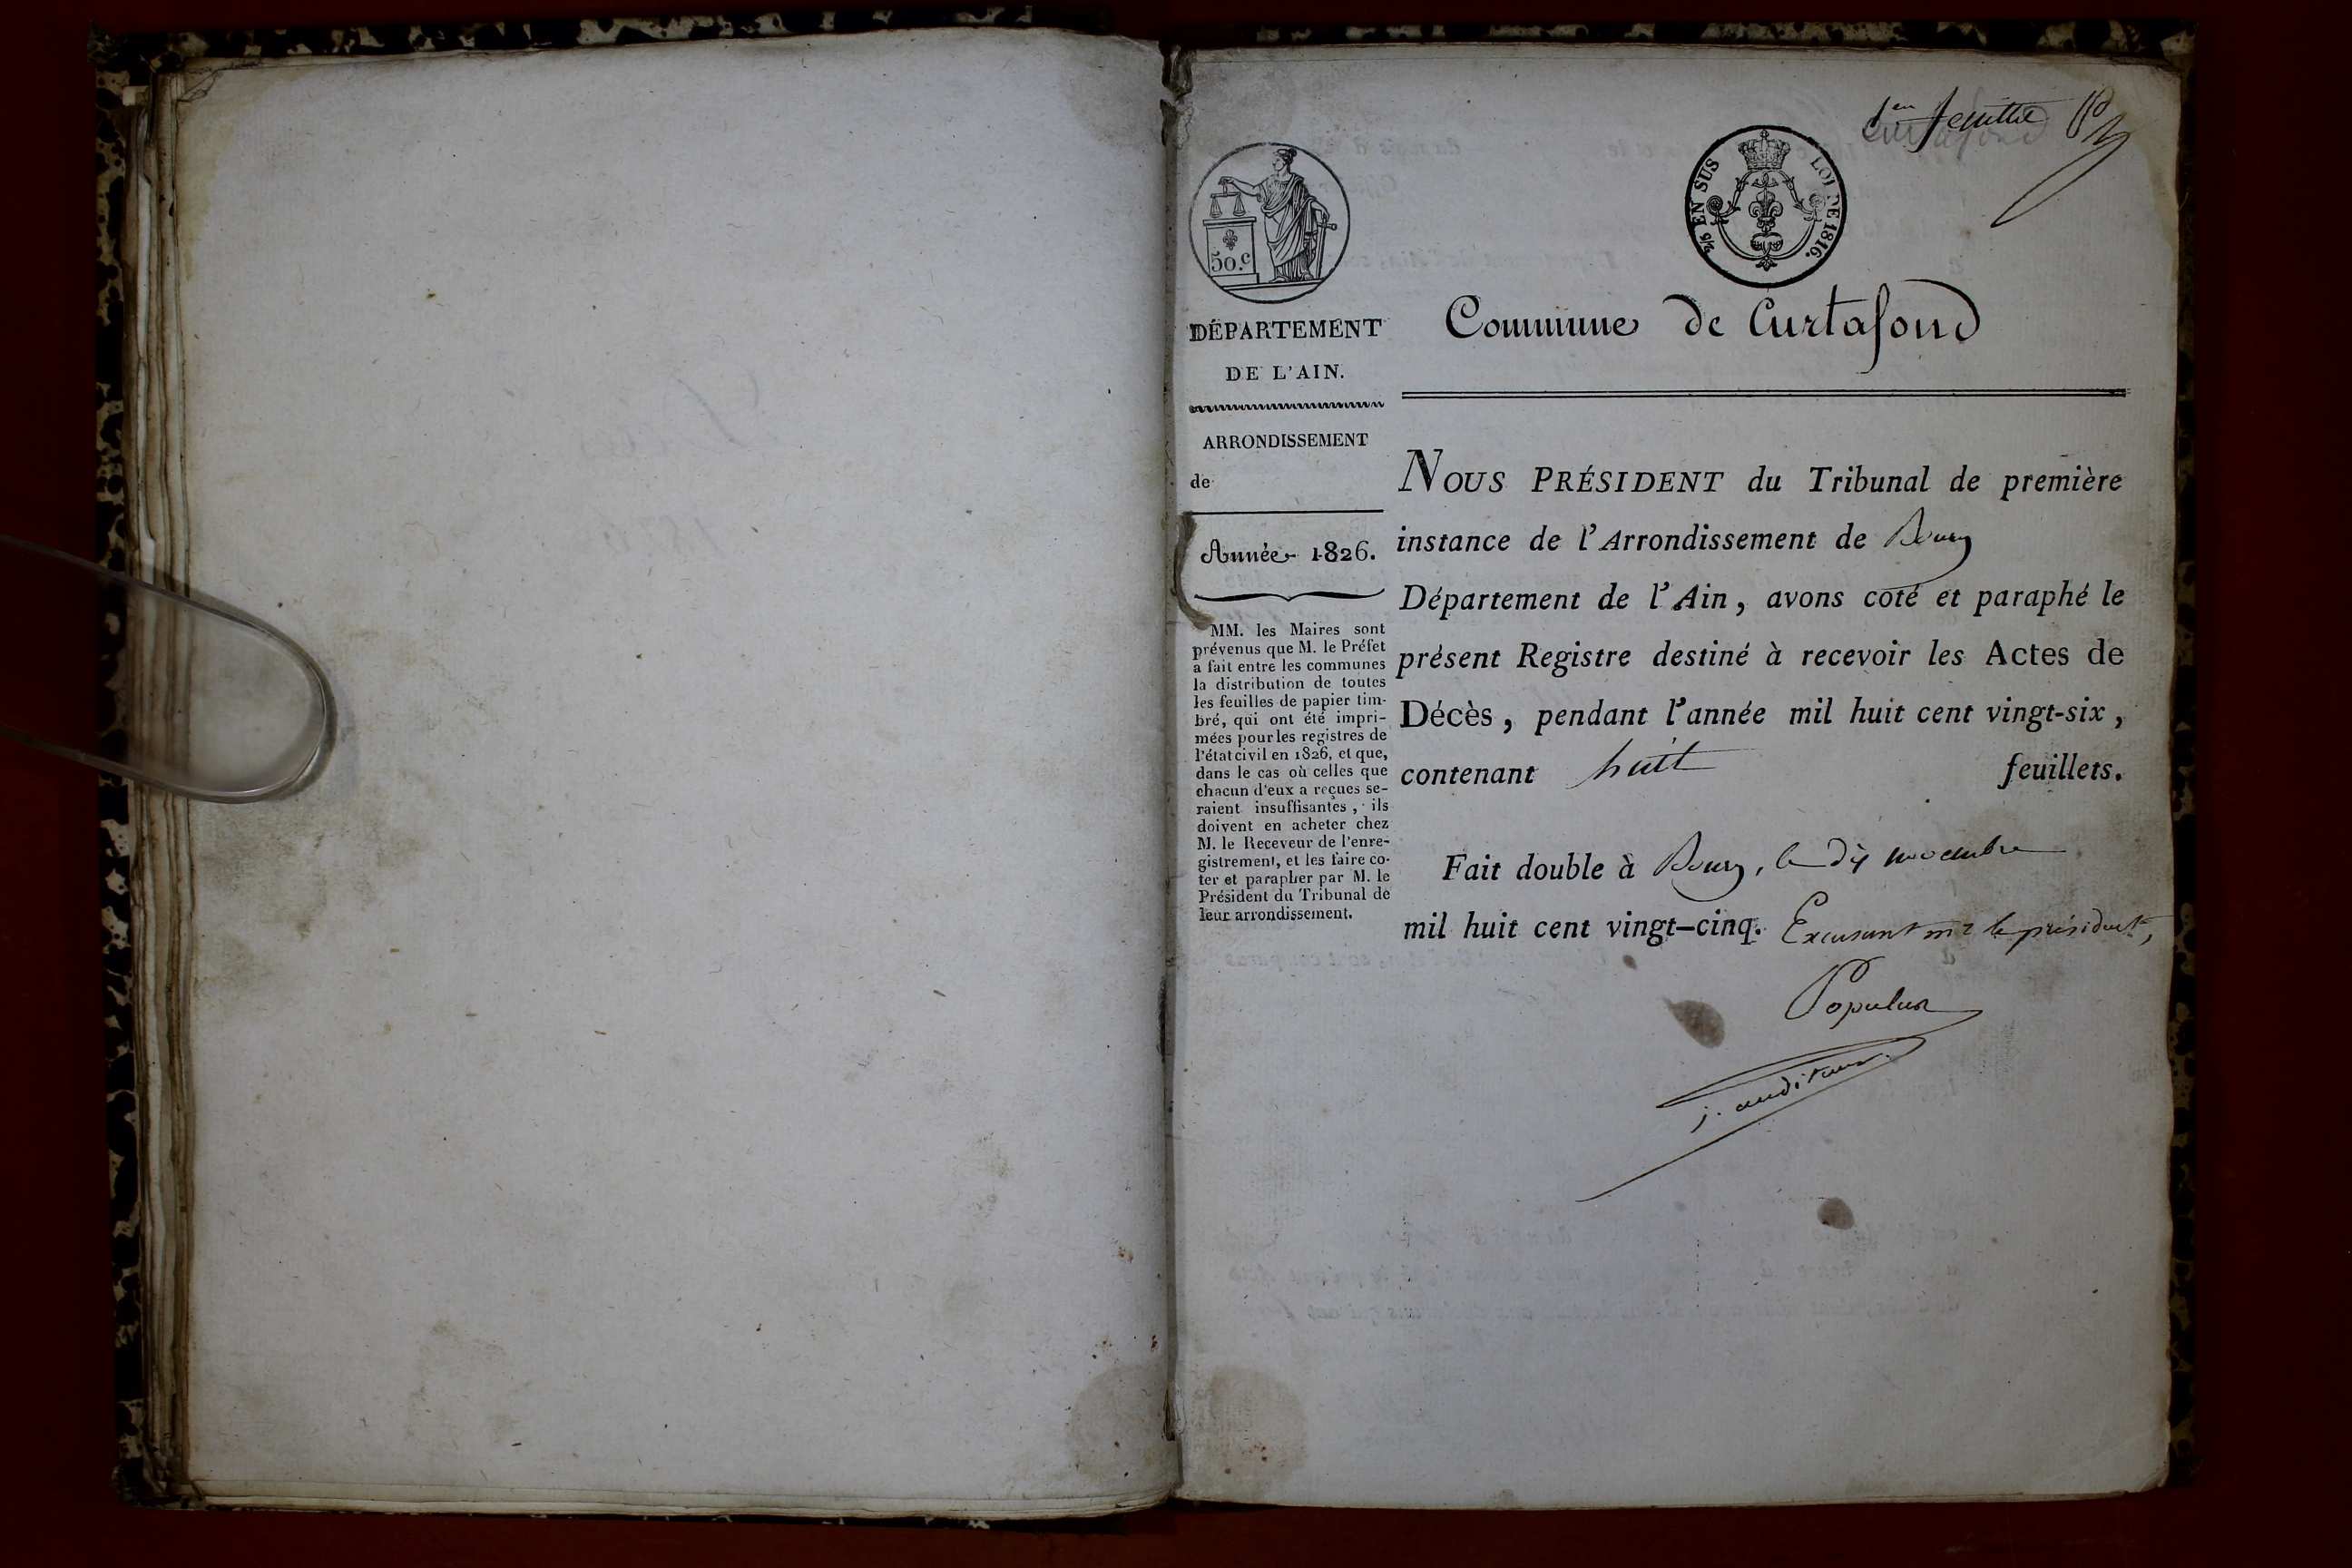 1er feuillet
Curtafond
50.c
5/5 EN SUS LOI DE 1816.
DÉPARTEMENT
DE L'AIN.
ARRONDISSEMENT
de
Année 1826.
MM. les Maires sont
prévenus que M. le Préfet
a fait entre les communes
la distribution de toutes
les feuilles de papier tim-
bré, qui ont été impri-
mées pour les registres de
l'état civil en 1826, et que,
dans le cas où celles que
chacun d'eux a reçues se-
raient insuffisantes, ils
doivent en acheter chez
M. le Receveur de l'enre-
gistrement, et les faire co-
ter et parapher par M. le
Président du Tribunal de
leur arrondissement.
Commune de Curtafond
NOUS PRÉSIDENT du Tribunal de première
instance de l'Arrondissement de Bourg
Département de l'Ain, avons coté et paraphé le
présent Registre destiné à recevoir les Actes de
Décès, pendant l'année mil huit cent vingt-six,
contenant huit feuillets.
Fait double à Bourg, le dix novembre
mil huit cent vingt-cinq. Excusant mr le président,
Populus
j. auditeur